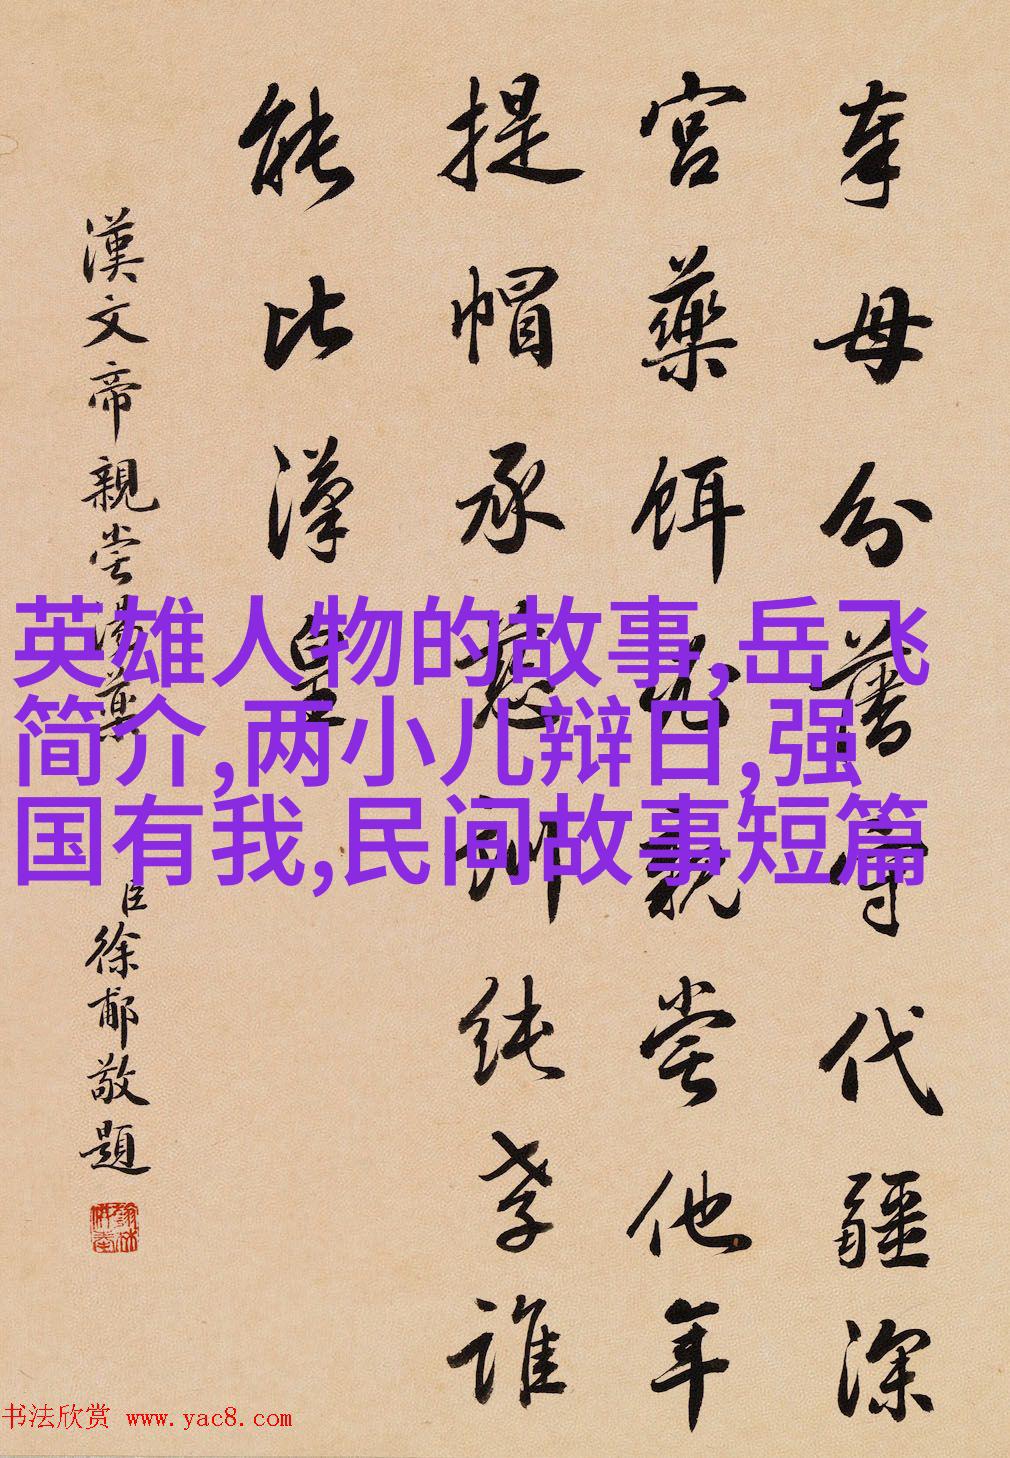 奉母分藩守代疆深
宮藥餌必親嘗他年
提帽承慈訓純孝誰
能比漢皇
漢文帝親嘗湯藥
臣徐郙敬題
英雄人物的故事,岳飞
简介,两小儿辩日,强
国有我,民间故事短篇
书法欣赏 www.yac8.com